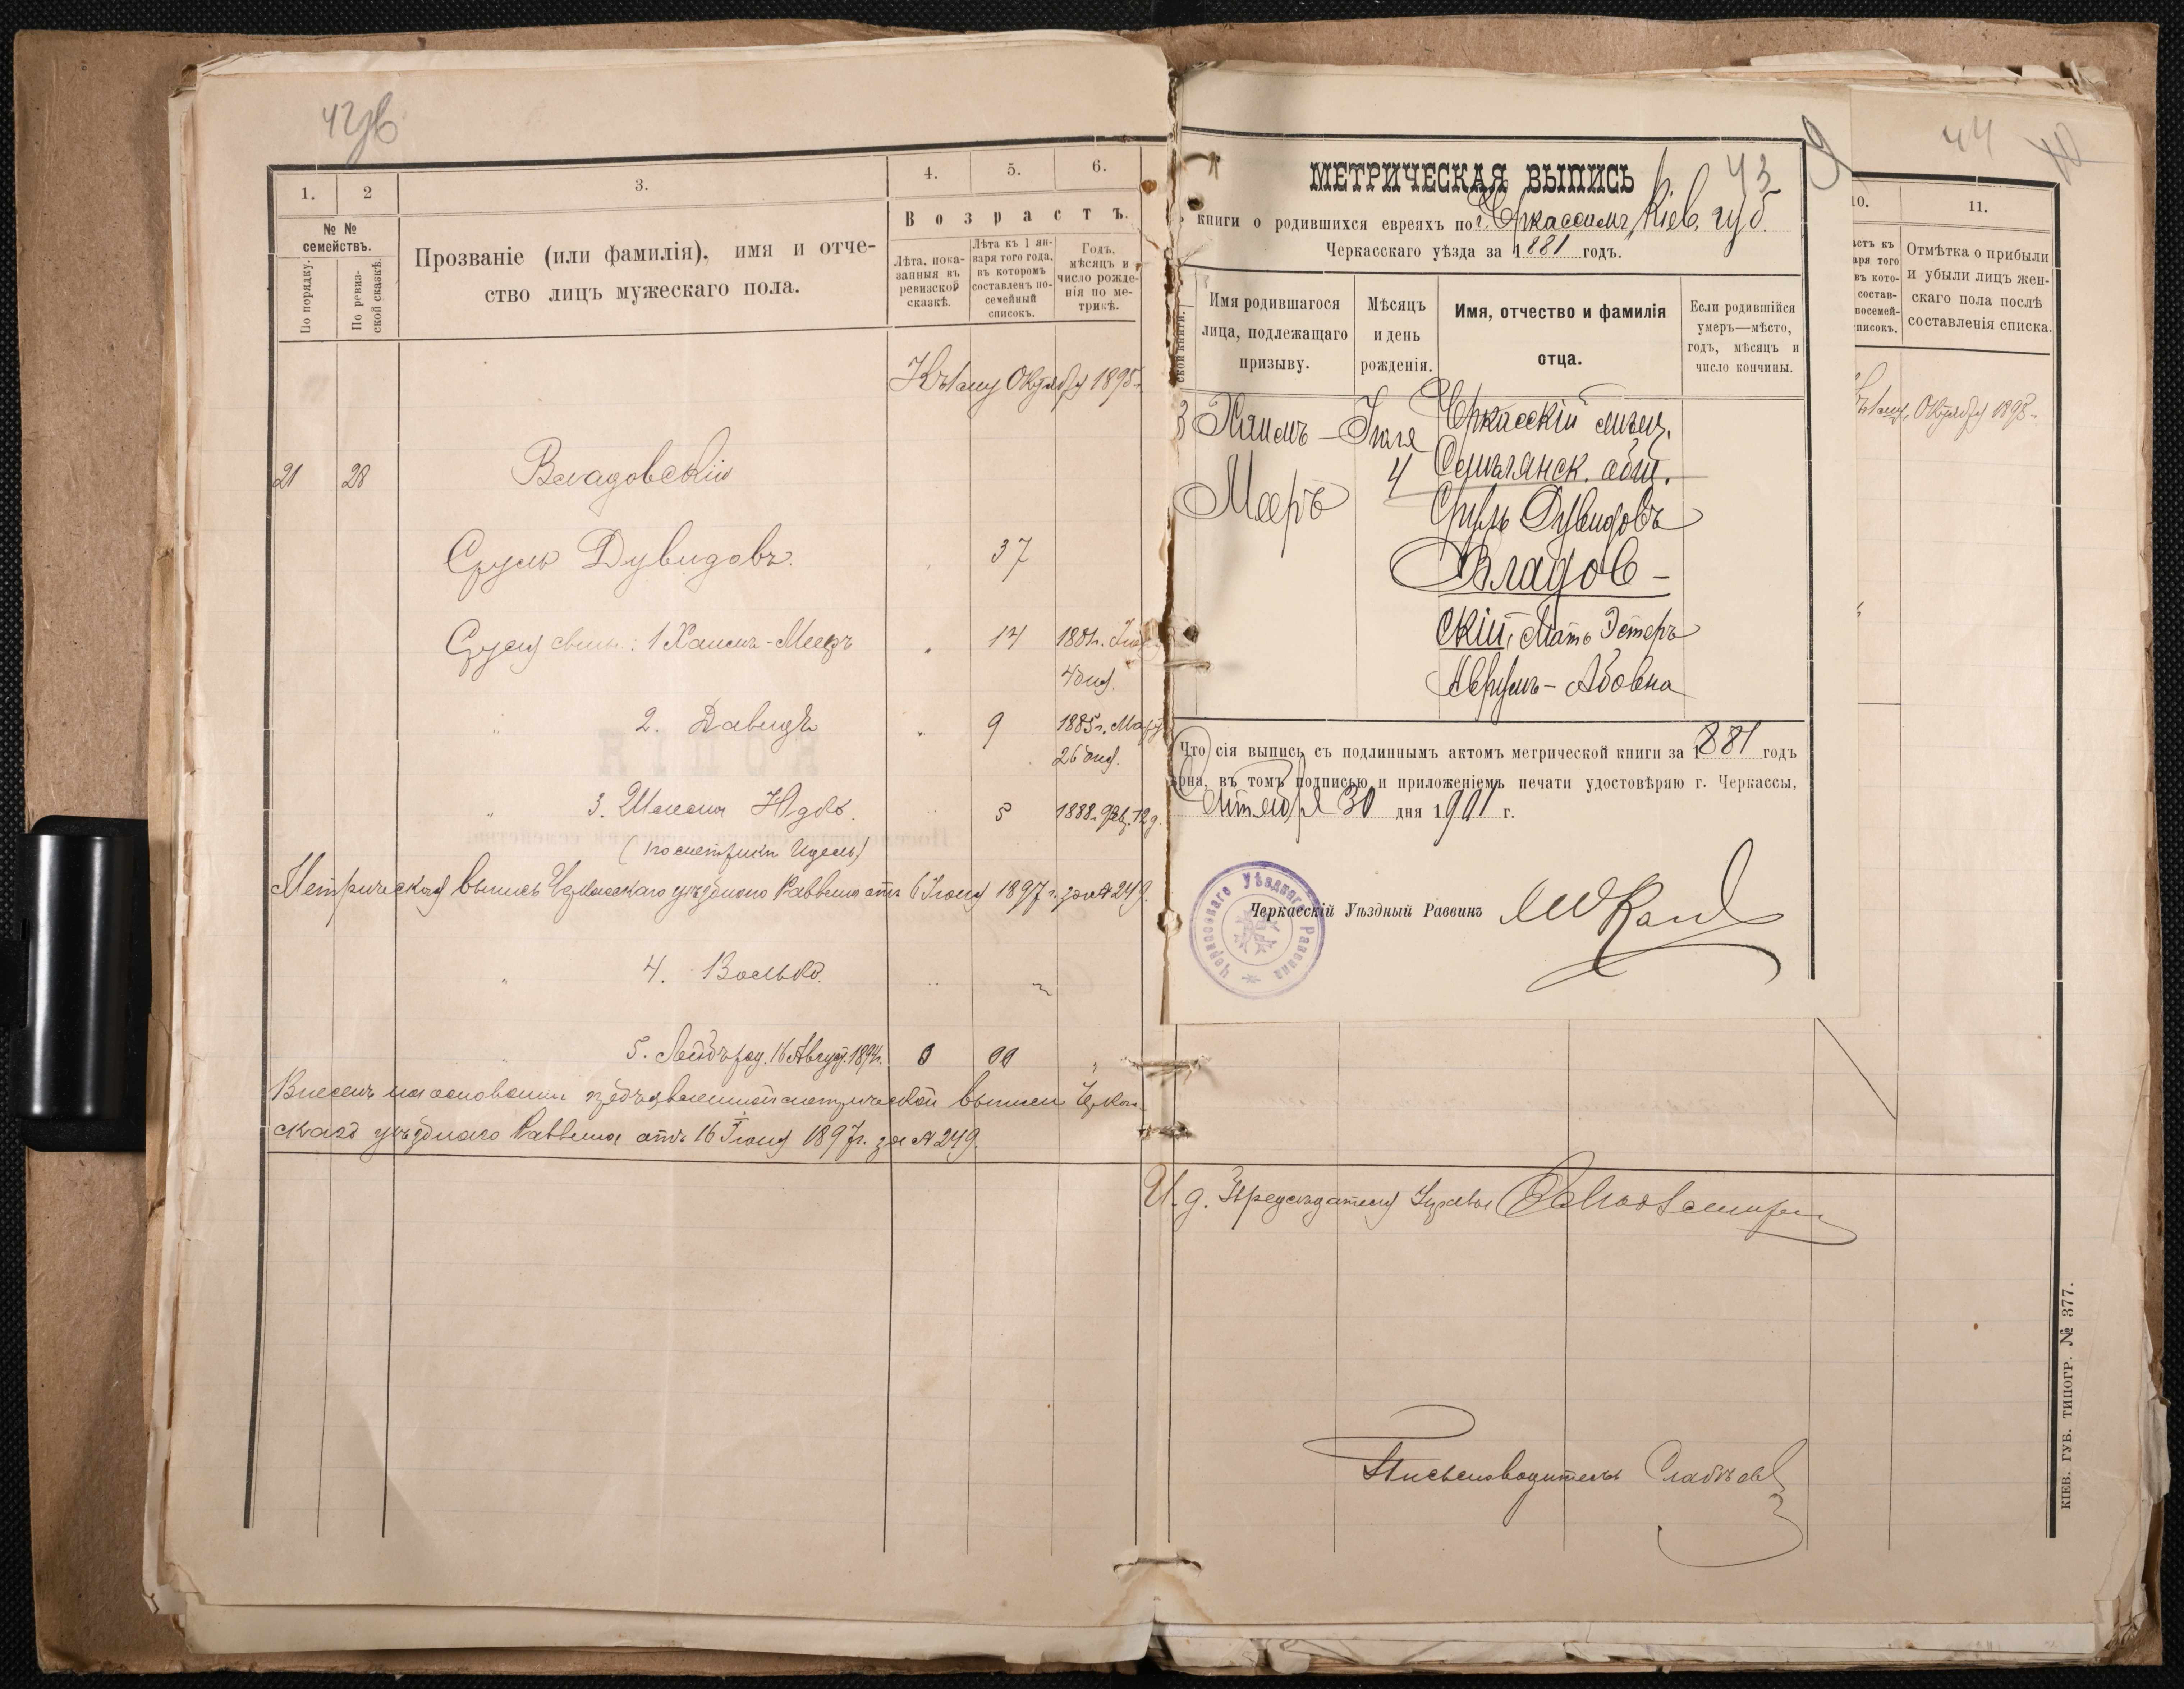 42 об
1.
2
3.
4.
5.
6.
№ №
семействъ.
По порядку.
По ревиз-
ской сказкѣ.
Прозваніе (или фамилія), имя и отче-
ство лицъ мужескаго пола.
Возрастъ.
Лѣта, пока-
занныя въ
ревизской
сказкѣ.
Лѣта къ 1 ян-
варя того года,
въ которомъ
составленъ по-
семейный
списокъ.
Годъ,
мѣсяцъ и
число рожде-
нія по ме-
трикѣ.
Къ 1 му Октября 1895
21 28 Владовскій
Сруль Дувидовъ. 37
Сруля сын.: 1 Хаимъ-Мееръ 14 1881 г. Іюля
4 дня.
2. Давидъ 9 1885 г. Март
26 дня.
3. Шлема Юдко. 5 1888 г. Фев. 12 д.
(по метрики Идель)
Метрическая выпись Черкасскаго уѣзднаго Раввина отъ 6 Іюня 1897 г. за № 249.
4. Волько.
5. Лейбъ род. 16 Август. 1894 г.
Внесенъ на основаніи предъявленной метрической выписи Черкас-
скаго уѣзднаго Раввина отъ 16 Іюня 1897 г. за № 249.
43
9
МЕТРИЧЕСКАЯ ВЫПИСЬ
книги о родившихся евреяхъ по г. Черкассамъ, Кіев. губ.
Черкасскаго уѣзда за 1881 годъ.
ской книги.
Имя родившагося
лица, подлежащаго
призыву.
Мѣсяцъ
и день
рожденія.
Имя, отчество и фамилія
отца.
Если родившійся
умеръ—мѣсто,
годъ, мѣсяцъ и
число кончины.
3 Хаимъ- Іюля Черкасскій мѣщ.
Мееръ 4 Смѣлянск. общ.
Сруль Дувидовъ
Владов-
скій, Мать Эстеръ
Аврумъ-Абовна
Что сія выпись съ подлиннымъ актомъ метрической книги за 1881 годъ
ѣрна, въ томъ подписью и приложеніемъ печати удостовѣряю г. Черкассы,
Сентября 30 дня 1901 г.
Черкасскій Уѣздный Раввинъ
Черкасскаго Уѣзднаго Раввина
44
10.
11.
астъ къ
аря того
въ кото-
состав-
посемей-
списокъ.
Отмѣтка о прибыли
и убыли лицъ жен-
скаго пола послѣ
составленія списка.
Къ 1 му Октября 1895
И. д. Предсѣдателя Управы
Письмоводитель
КІЕВ. ГУБ. ТИПОГР. № 377.